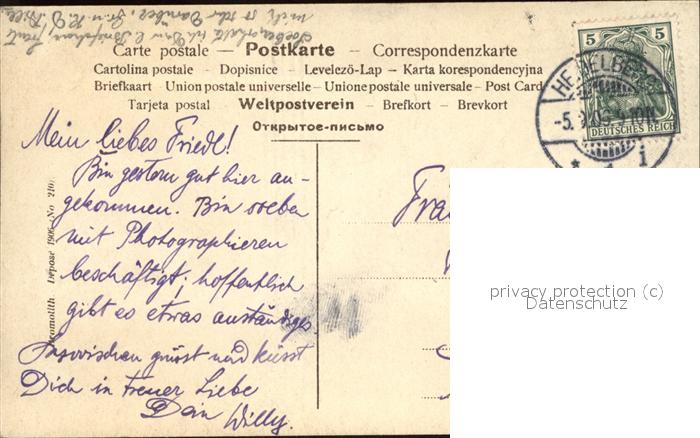 Carte postale — Postkarte — Correspondenzkarte
Cartolina postale - Dopisnice - Levelező-Lap - Karta korespondencyjna
Briefkaart - Union postale universelle - Unione postale universale - Post Card
Tarjeta postal - Weltpostverein - Brefkort - Brevkort
Открытое-письмо
5 5
DEUTSCHES REICH
HEIDELBERG
-5. 9-10N.
* 1 i
Mein liebes Friedl!
Bin gestern gut hier an-
gekommen. Bin soeben
mit Photographieren
beschäftigt; hoffentlich
gibt es etwas anständiges.
Inzwischen grüsst und küsst
Dich in treuer Liebe
Dein Willy.
Dépose 1906 No 210
privacy protection (c)
Datenschutz